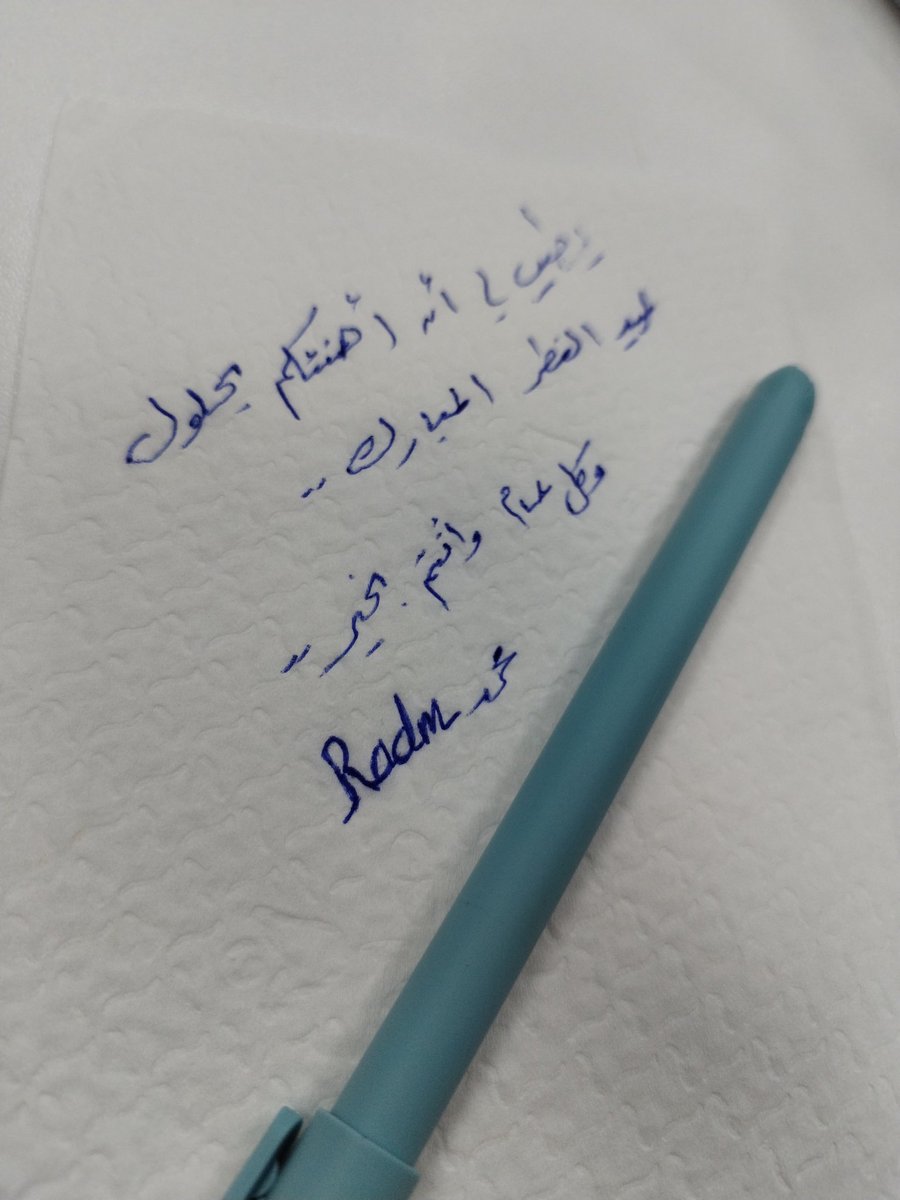 يطيب لي أن أهنئكم بحلول
عيد الفطر المبارك ..
وكل عام وأنتم بخير ..
محمد Radm